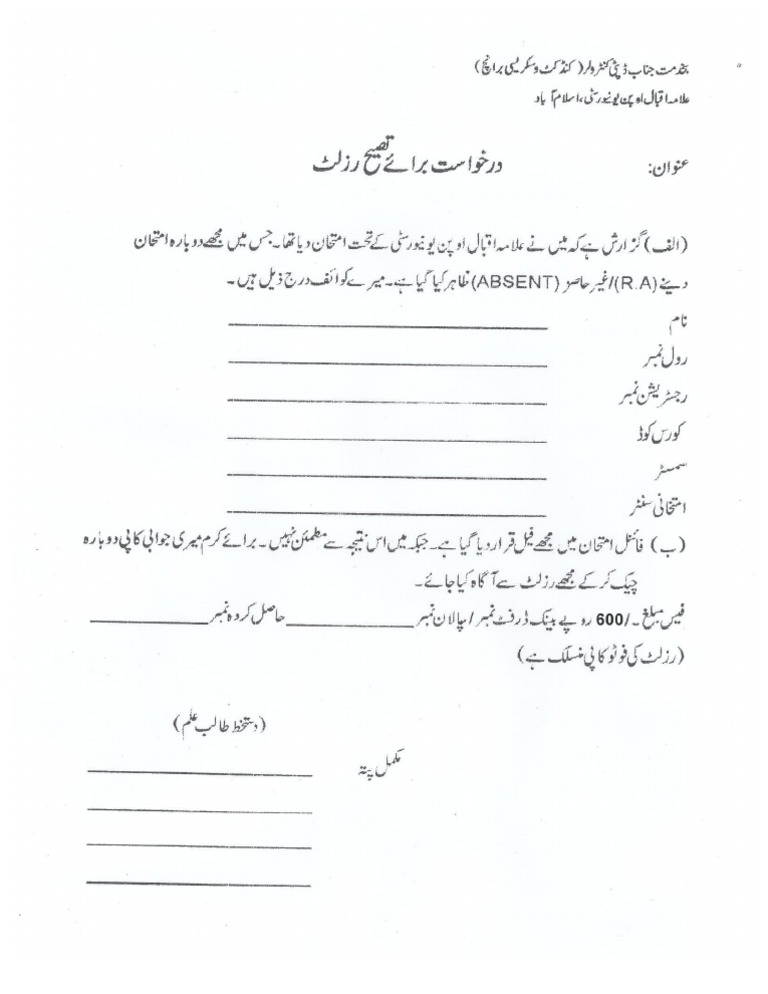 بخدمت جناب ڈپٹی کنٹرولر (کنڈکٹ وسکریسی برانچ)
علامہ اقبال اوپن یونیورسٹی، اسلام آباد
عنوان: درخواست برائے تصیح رزلٹ
(الف) گزارش ہے کہ میں نے علامہ اقبال اوپن یونیورسٹی کے تحت امتحان دیا تھا۔ جس میں مجھے دوبارہ امتحان
دینے (R.A)/غیر حاضر (ABSENT) ظاہر کیا گیا ہے۔ میرے کوائف درج ذیل ہیں۔
نام
رول نمبر
رجسٹریشن نمبر
کورس کوڈ
سمسٹر
امتحانی سنٹر
(ب) فائنل امتحان میں مجھے فیل قرار دیا گیا ہے۔ جبکہ میں اس نتیجہ سے مطمئن نہیں۔ برائے کرم میری جوابی کاپی دوبارہ
چیک کر کے مجھے رزلٹ سے آگاہ کیا جائے۔
فیس مبلغ ۔/600 روپے بینک ڈرفٹ نمبر / چالان نمبر ____________ حاصل کردہ نمبر ____________
(رزلٹ کی فوٹو کاپی منسلک ہے)
(دستخط طالب علم)
مکمل پتہ